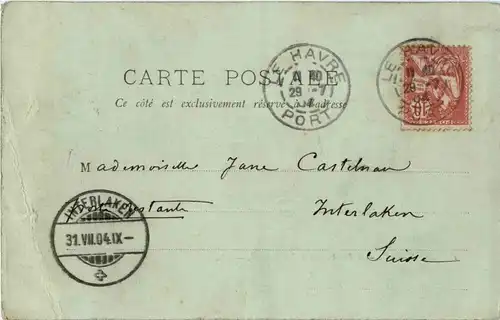 CARTE POSTALE
Ce côté est exclusivement réservé à l'adresse
LE HAVRE
29
PORT
LE HAVRE
29
Mademoiselle Jane Castelnau
Poste restante
Interlaken
Suisse
INTERLAKEN
31.VII.04.IX–
10